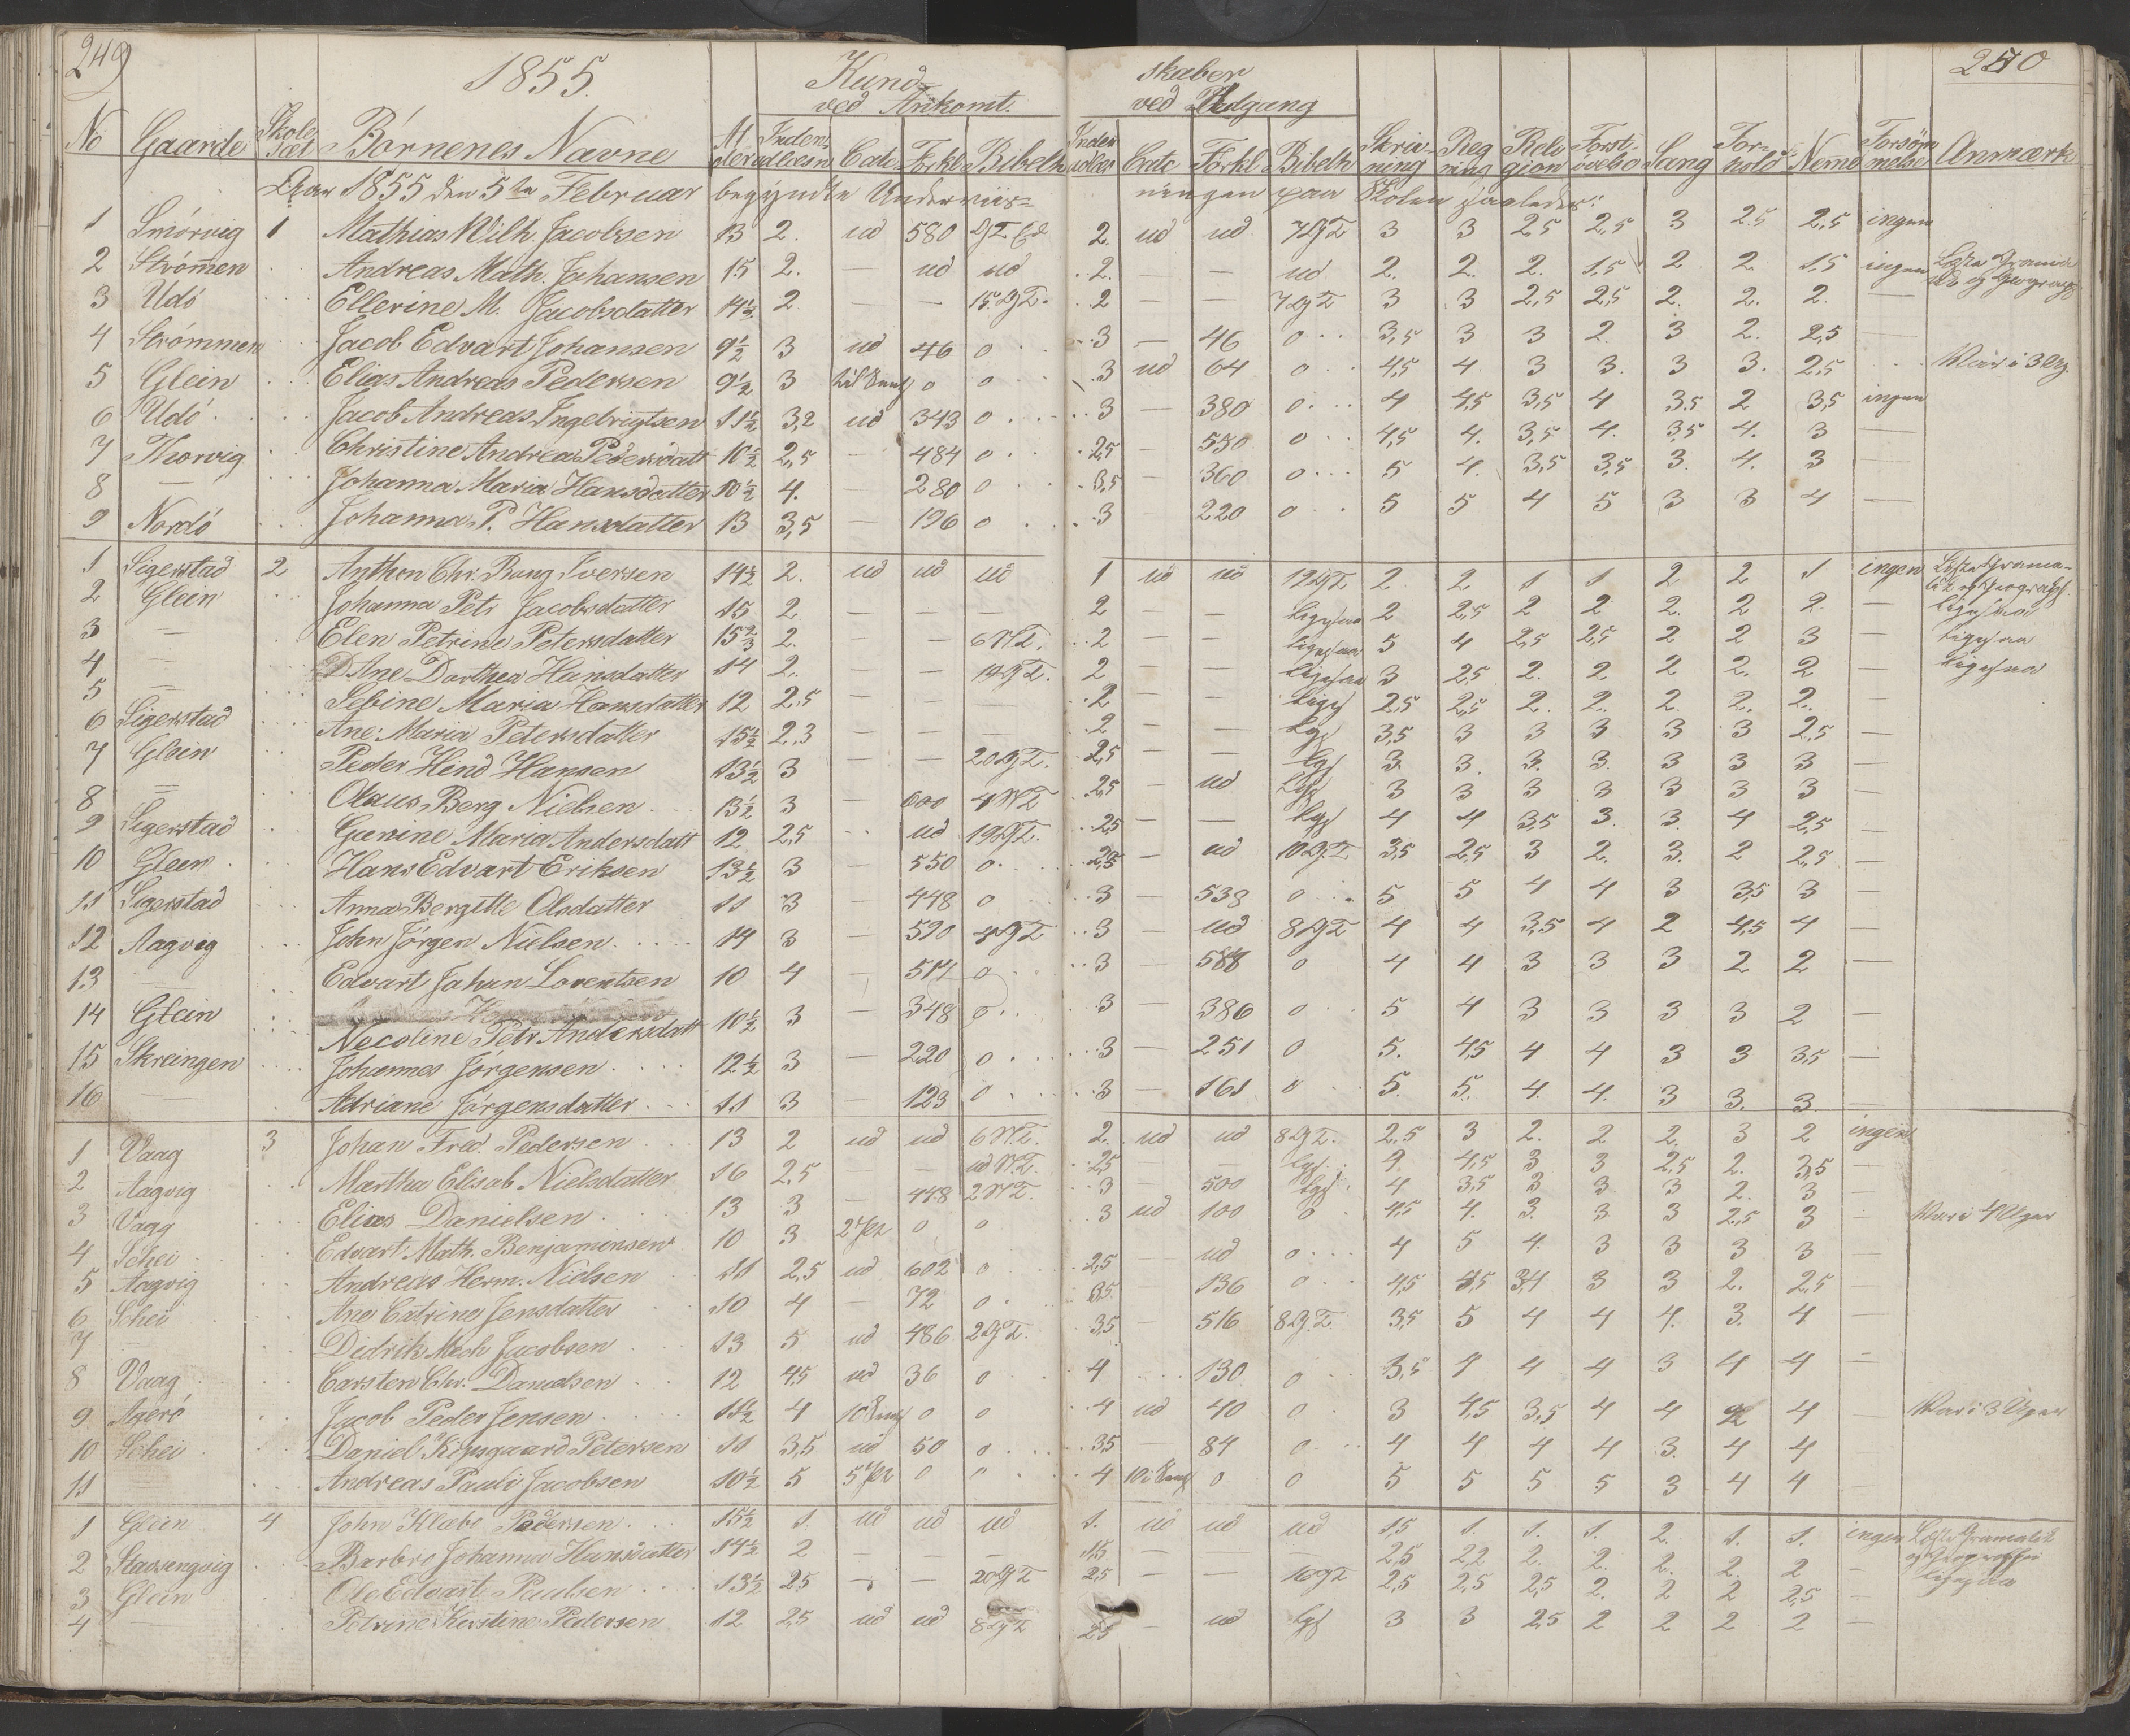 249
1855.
Kund= skaber
250
ved Ankomt. ved Udgang
No Gaarde Skole Sæt Børnenes Navne Al der Inden adlæsn Catc Forkl Bibelh Inden adlæs Catc Forkl Bibelh Skriv- ning Reg ning Reli gion Forst. øvelse Sang For- hold Neme Forsøm melse Anmærk
Aar 1855 den 5te Februar begyndte Underviis= ningen paa Skolen saaledes:
1 Smørvig 1 Mathias Wilh. Jacobsen 13 2. ud 580 2. ud ud 7 GT 3 3 2,5 2,5 3 2.5 2,5 ingen
2 Strømen Andreas Math. Johansen 15 2. — ud ud 2. — ud 2. 2. 2. 1.5 2 2. 1,5 ingen
3 Udø Ellerine M. Jacobsdatter 14½ 2. — — 15 GT. 2 — — 7 GT 3 3 2,5 2,5 2. 2. 2. —
4 Strømmen Jacob Edvart Johansen 9½ 3 ud 46 0 3 — 46 0 3,5 3 3 2. 3 2. 2,5 —
5 Glein Elias Andreas Pedersen 9½ 3 0 0 3 ud 64 0 4,5 4 3 3. 3 3. 2,5 Var i 3 Ug.
6 Udø Jacob Andreas Ingebrigtsen 11½ 3,2 ud 343 0 3 — 380 0 4 4,5 3,5 4 3.5 2 3,5 ingen
7 Thorvig Christine Andrea Pedersdatt 10½ 2,5 — 484 0 2,5 — 550 0 4,5 4. 3,5 4. 3,5 4. 3 —
8 — Johanna Maria Hansdatter 10½ 4. — 280 0 3,5 — 360 0 5 4. 3,5 3,5 3. 4. 3 —
9 Nordø Johanna P. Hansdatter 13 3,5 — 196 0 3 — 220 0 5 5 4 5 3 3 4 —
1 Sigerstad 2 Anthon Chr. Bang Iversen 14½ 2. ud ud ud 1 ud ud 12 GT 2. 2. 1 1 2 2 1 ingen
2 Glein Johanna Petr Jacobsdatter 15 2. — — — 2 — — ligesaa 2 2,5 2 2 2. 2 2. — ligesaa
3 — Elen Petrine Petersdatter 15⅔ 2. — — 6 NT. 2 — — ligesaa 5 4 2,5 2,5 2 2 3 — ligesaa
4 — Ane Dorthea Hansdatter 14 2. — — 19 GT. 2 — — ligesaa 3 2,5 2. 2 2 2. 2 — ligesaa
5 — Sebine Maria Hansdatter 12 2,5 — — — 2 — — liges 2,5 2,5 2. 2. 2. 2. 2. —
6 Sigerstad Ane Maria Petersdatter 15½ 2.3 — — — 2 — — lgs 3,5 3 3 3 3 3 2,5 —
7 Glein Peder Hind Hansen 13½ 3 — — 20 GT. 2,5 — — lgs 3. 3. 3. 3. 3 3 3 —
8 — Olaus Berg Nielsen 13½ 3 — 600 4 NT 2,5 — ud lgs 3 3 3 3 3 3 3 —
9 Sigerstad Gurine Maria Andersdatt 12 2,5 ud 19 GT. 2,5 — — lgs 4 4 3,5 3. 3. 4 2,5 —
10 Glein Hans Edvart Eriksen 13½ 3 — 550 0 2,5 — ud 10 GT 3,5 2,5 3 2. 3. 2 2,5 —
11 Sigerstad Anna Bergitte Olsdatter 11 3 448 0 3 — 538 0 5 5 4 4 3 3,5 3 —
12 Aagvig John Jørgen Nielsen 14 3 — 590 4 GT 3 — ud 8 GT 4 4 3,5 4 2 4,5 4 —
13 — Edvart Johan Loventsen 10 4 — 514 0 3 — 588 0 4 4 3 3 3 2 2 —
14 Glein Necoline Petr. Andersdatt 10½ 3 — 348 0 3 — 386 0 5 4 3 3 3 3 2 —
15 Skreingen Johannes Jørgensen 12½ 3 — 220 0 3 — 251 0 5. 4,5 4 4 3 3 3,5 —
16 — Adriane Jørgensdatter 11 3 — 123 0 3 — 161 0 5. 5. 4. 4. 3 3. 3 —
1 Vaag 3 Johan Fred. Pedersen 13 2 ud ud 6 NT. 2. ud ud 8 GT. 2,5 3 2. 2 2. 3 2 ingen
2 Aagvig Martha Elisab Nielsdatter 16 2,5 — — ud NT. 2,5 — — lgs 4 4,5 3 3 2,5 2. 3,5 —
3 Vaag Elias Danielsen 13 3 — 448 2 NT. 3 — 500 lgs 4 3,5 3 3 3 2. 3 —
4 Schei Edvart Math. Benjaminsen 10 3 0 0 3 ud 100 0 4,5 4. 3. 3 3 2,5 3 — Var i 4 Uger
5 Aagvig Andreas Herm. Nielsen 11 2,5 ud 602 0 2,5 ud 0 4 5 4. 3 3 3 3 —
6 Schei Ane Catrine Jensdatter 10 4 — 72 0 3,5 — 136 0 4,5 3,5 3,4 3 3 2. 2,5 —
7 — Didrik Mech Jacobsen 13 5 ud 486 2 GT. 3,5 — 516 8 GT. 3,5 5 4 4 4. 3. 4 —
8 Vaag Carsten Chr. Danielsen 12 4,5 ud 36 0 4 130 0 3,5 4 4 4 3 4 4 —
9 Agerø Jacob Peder Jensen 11½ 4 0 0 4 ud 40 0 3 4,5 3,5 4 4 4 — Var i 3 Uger
10 Schei Daniel Kirpsgaard Petersen 11 3,5 ud 50 0 3,5 — 84 0 4 4 4 4 3. 4 4
11 — Andreas Pauli Jacobsen 10½ 5 0 0 4 0 0 5 5 5 5 3 4 4 —
1 Glein 4 John Klæbo Pedersen 15½ 1. ud ud ud 1. ud ud ud 1,5 1. 1. 1. 2. 1. 1. ingen
2 Stavsengvig Barbro Johanna Hansdatter 14½ 2 — — — 1,5 — — — 2,5 2,2 2. 2. 2. 2. 2 —
3 Glein Ole Edvart Paulsen 13½ 2,5 — — 20 GT 2,5 — — 16 GT 2,5 2,5 2,5 2. 2 2 2,5 — ligesaa
4 — Petrine Kerstine Pedersen 12 2,5 ud ud 8 GT 2,5 — ud lgs 3 3 2,5 2 2 2 2 —